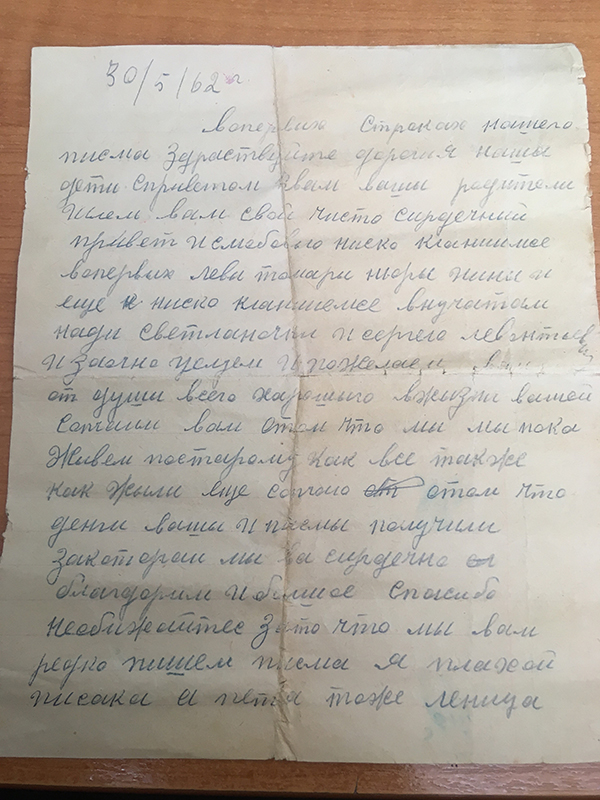 30/5/62 г.
вопервих строках нашего
писма здраствуйте дорогия наши
дети сприветом квам ваши родители
шлем вам свой чисто сирдечний
привет и слюбовю ниско кланиимсе
вопервих леви томари нюри нини и
еще ниско кланиемсе внучатам
нади светланочки и серегю
и заочно целуем и пожелаем
от души всего харошого вжизни вашой
сопчаим вам отом что ми ми пока
живем постарому как все также
как жыли еще сопчаю отом что
денги ваши и писмы получили
закоторои мы ва сирдечно
благодорим и болшое спасибо
необижайтес зато что мы вам
редко пишем писма я плахой
писака а петя тоже леница